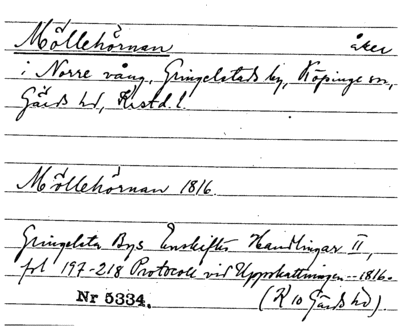 Möllehörnan åker
i Norre vång, Gringelstads by, Köpinge sn,
Gärds hd, Kristd. l.
Möllehörnan 1816.
Gringelsta Bys Enskiftes Handlingar II,
fol 197-218 Protocoll vid Uppskattningen -- 1816.
Nr 5334. (K 10 Gärds hd).